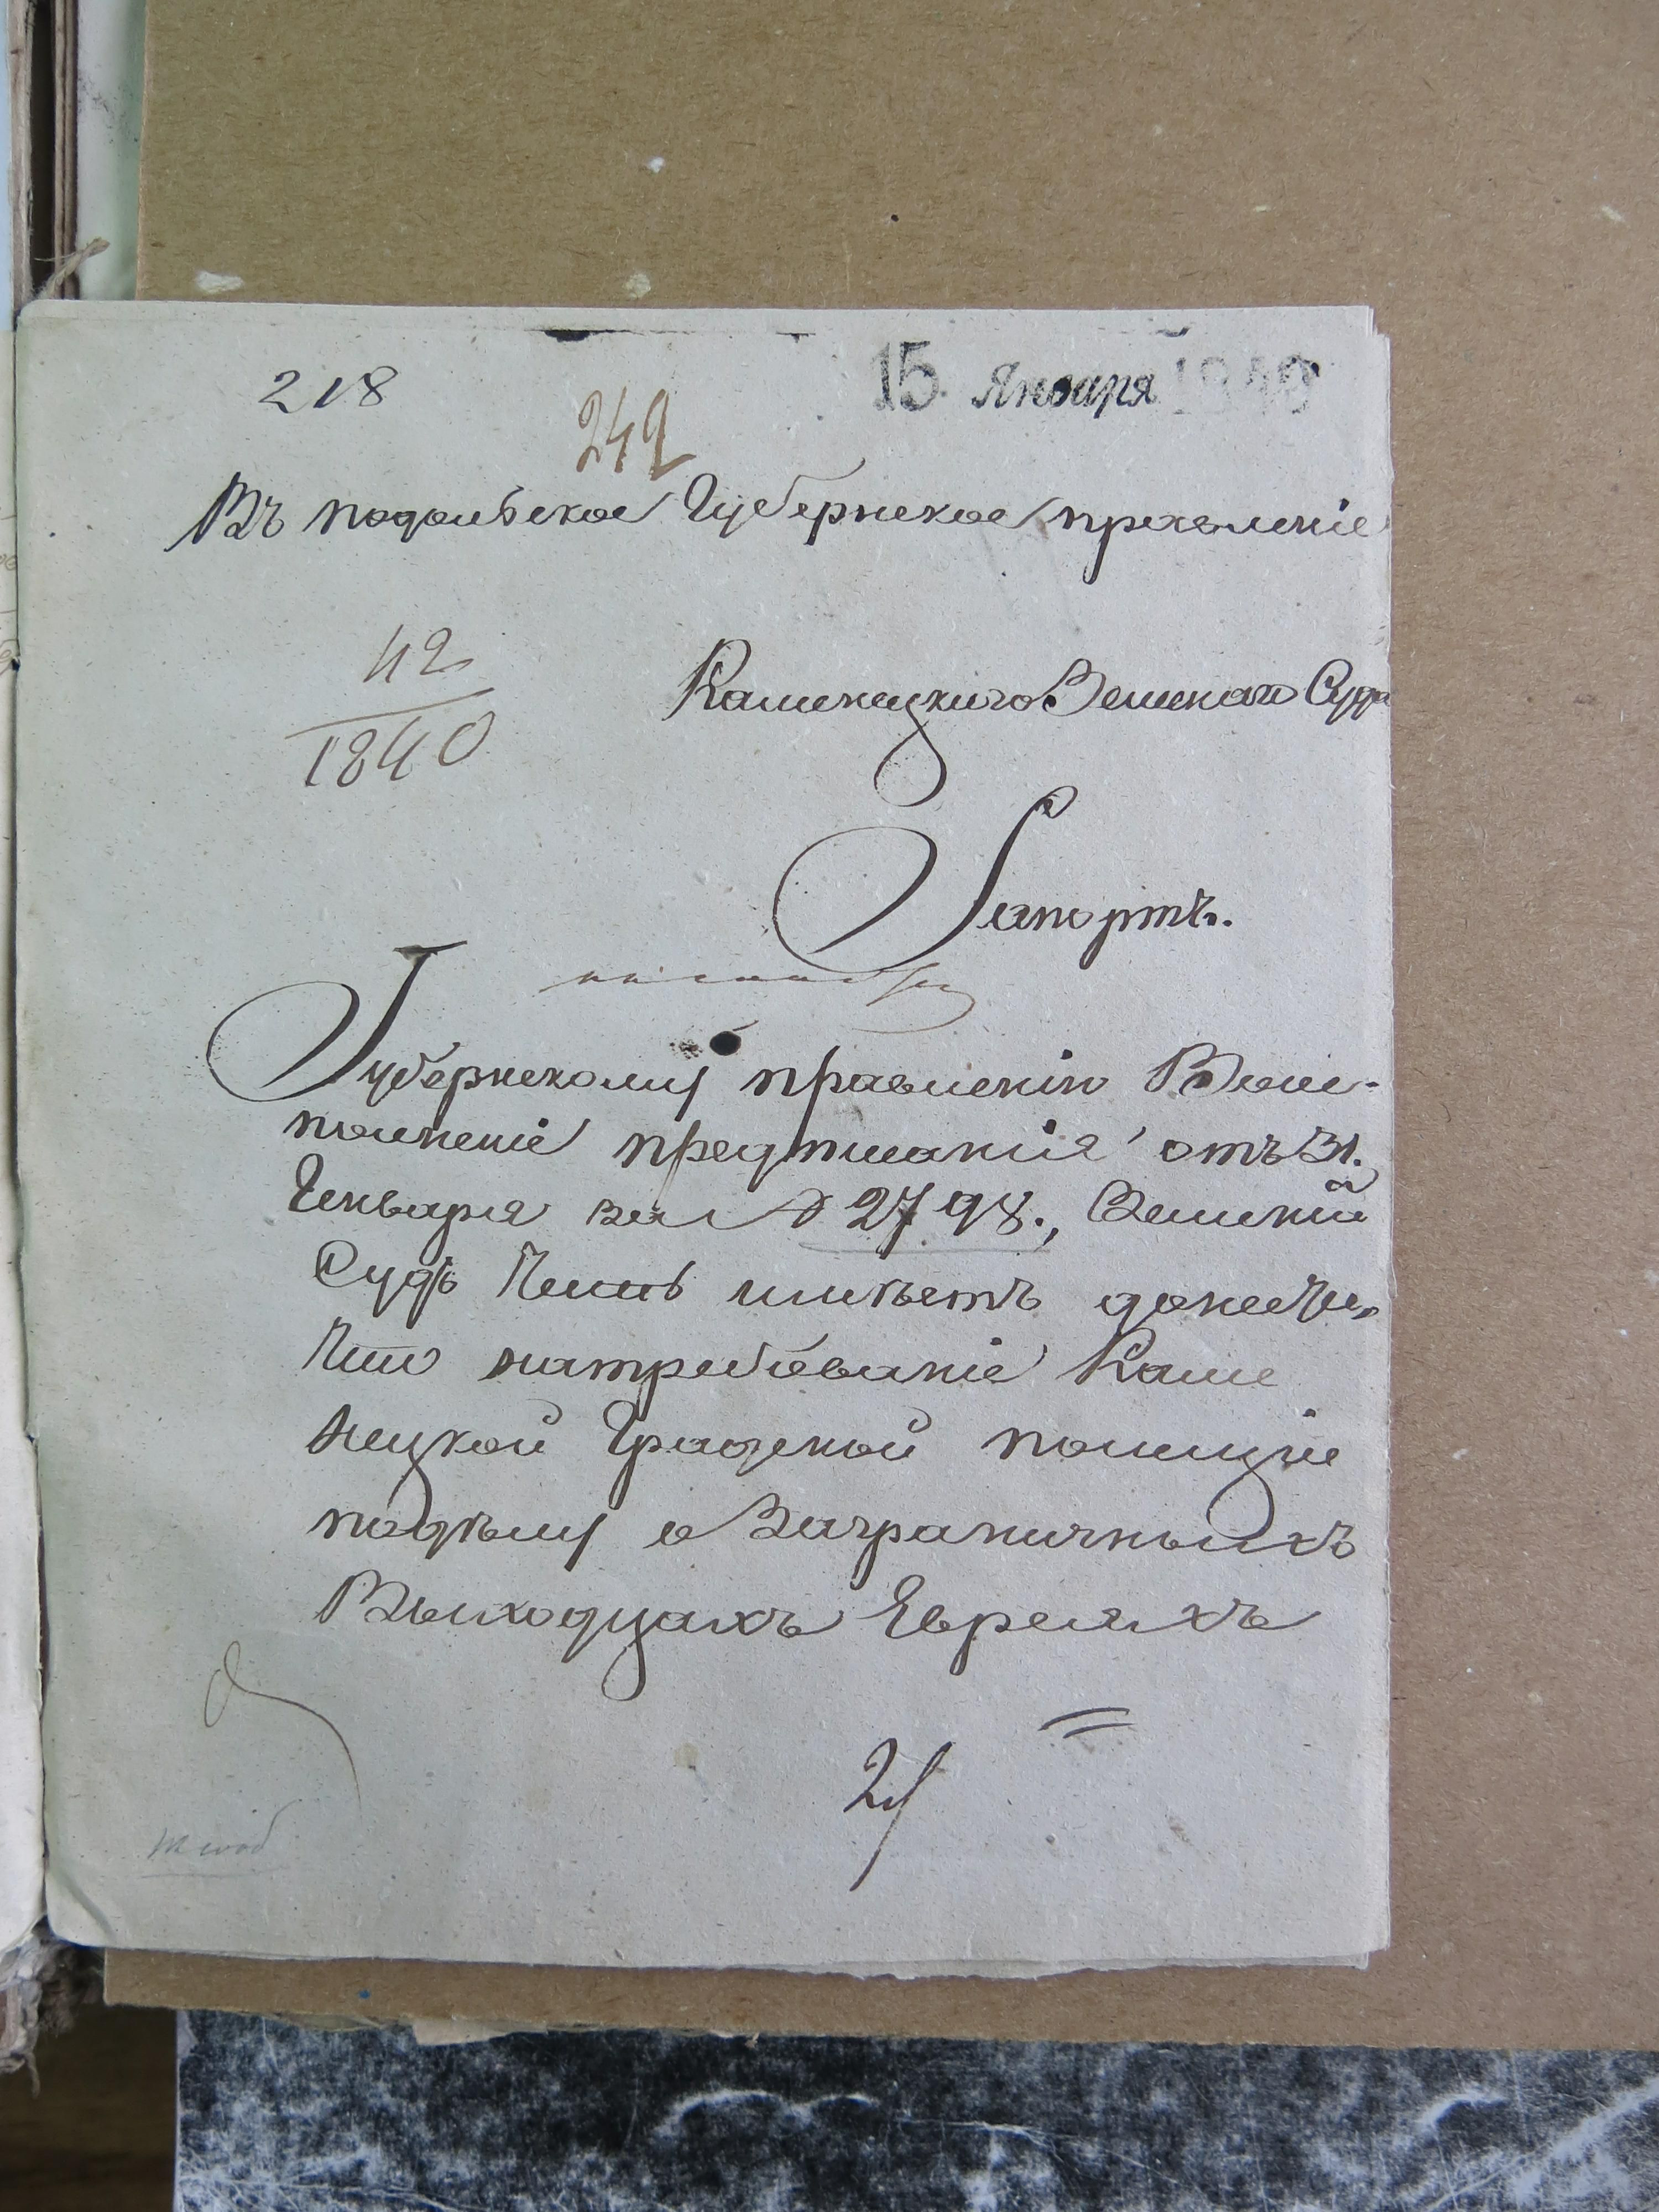 218
15 Января 1840
242
Въ подольское Губернское правленіе
42
1840
Каменецкаго Земскаго Суда
Рапортъ.
Губернскому правленію Воис-
полненіе предписанія отъ 31.
Генваря за № 2798., Земскій
Судъ Честь имѣетъ донести,
Что натребованіе Каме
нецкой Градской полиціи
подѣлу о Заграничныхъ
Выходцахъ Евреяхъ